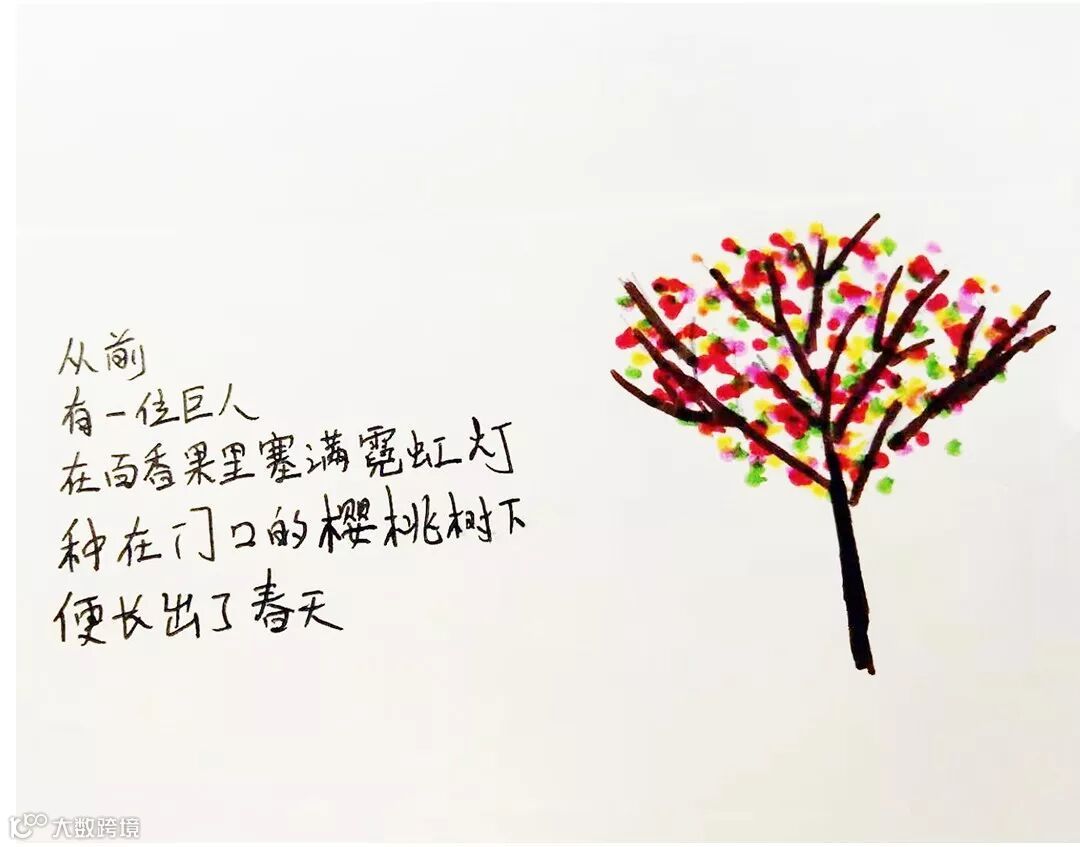 从前
有一位巨人
在百香果里塞满霓虹灯
种在门口的樱桃树下
便长出了春天
大数跨境